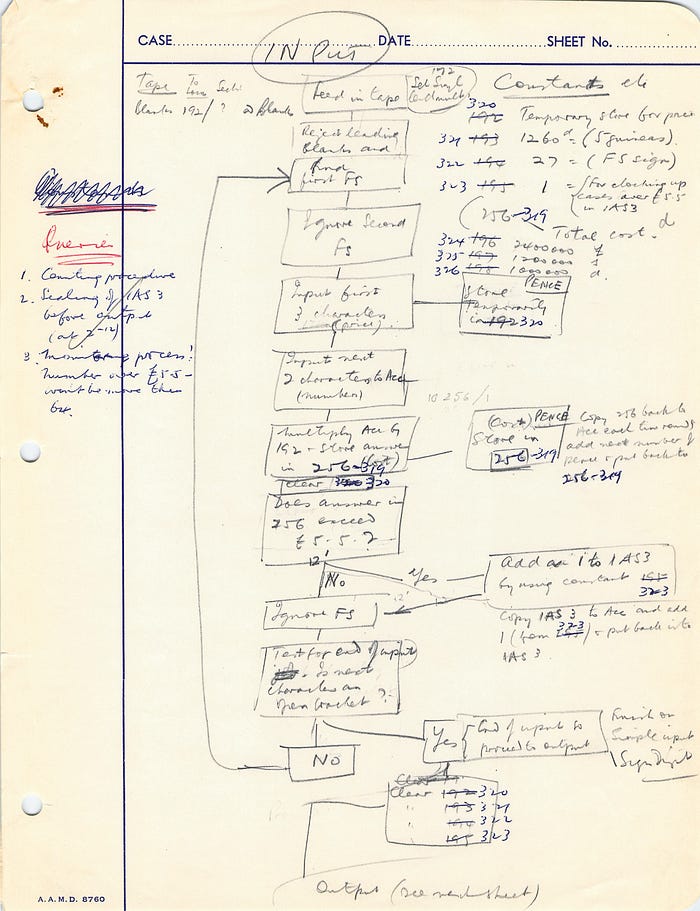 CASE
DATE
SHEET No.
INPUT
Tape To
blanks 192/? Blanks
Feed in tape
Constants etc
320
192 Temporary store for price
321 193 1260d = (5 guineas)
322 194 27 = (FS sign)
323 195 1 = (for clocking up
cases over £5.5
in IAS3
(256-319
Total cost. d
324 196 2400000 £
325 197 1200000 s
326 198 1000000 d.
Reject leading
blanks and
Find
first FS
Ignore Second
FS
Queries
1. Counting procedure
2. Scaling of IAS 3
before output
(at 2-12)
3. Monitoring process?
Number over £5.5-
won't be more than
64.
Input first
3 characters
(price)
PENCE
Store
Temporarily
in 192 320
Input next
2 characters to Acc
(number)
256/1
Multiply Acc by
192 + Store answer
in 256-319 (Cost)
clear 320
(Cost) PENCE
Store in
256-319
Copy 256 back to
Acc each time round
add next number of
pence + put back to
256-319
Does answer in
256 exceed
£5-5.?
12'
No
Yes
12'
12
Add a 1 to IAS3
by using constant 195
323
Ignore FS
Copy IAS 3 to Acc and add
1 (from 195 323) + put back into
IAS 3.
Test for end of input
Is next
character an
open bracket?
NO
Yes
End of input so
proceed to output
Finish on
Simple input
Sign Digit
Clear 192 320
" 193 321
" 194 322
195 323
Output (see next sheet)
A.A.M.D. 8760